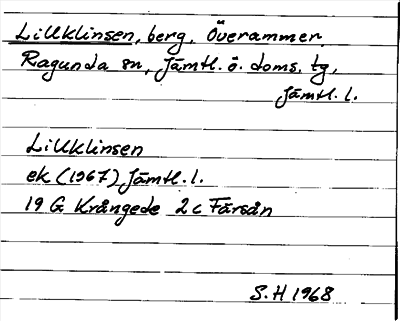 Lillklinsen, berg, Överammer,
Ragunda sn, Jämtl. ö. doms. tg,
Jämtl. l.
Lillklinsen
ek (1967) Jämtl. l.
19 G Krångede 2 c Färsån
S.H 1968